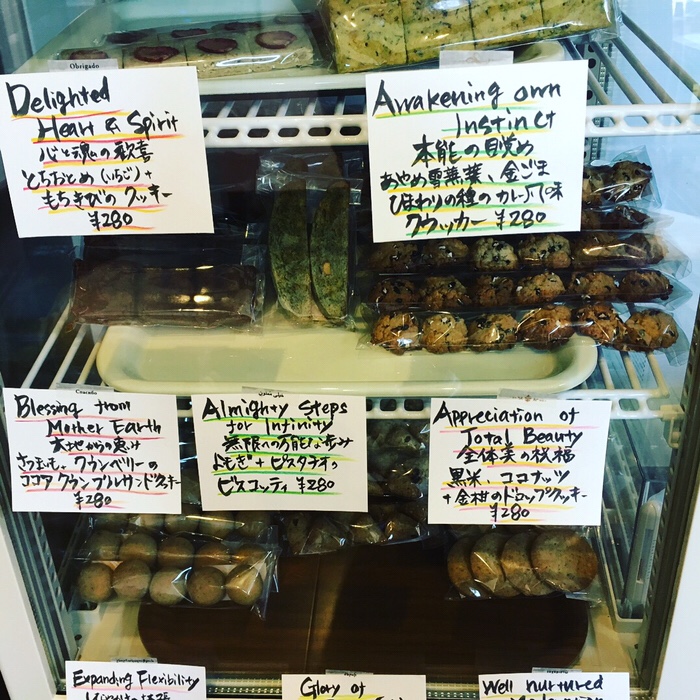 Obrigado
Delighted
Heart & Spirit
心と魂の歓喜
とちおとめ(いちご)+
もちきびのクッキー
¥280
Awakening own
Instinct
本能の目覚め
あやめ雪蕪葉、金ごま
ひまわりの種のカレー風味
クラッカー ¥280
Blessing from
Mother Earth
大地からの恵み
さつまいも、クランベリーの
ココアクランブルサンドクッキー
¥280
Almighty Steps
for Infinity
無限への万能な歩み
よもぎ+ピスタチオの
ビスコッティ ¥280
Appreciation of
Total Beauty
全体美の祝福
黒米、ココナッツ
+金柑のドロップクッキー
¥280
Expanding Flexibility
Glory of
Well nurtured